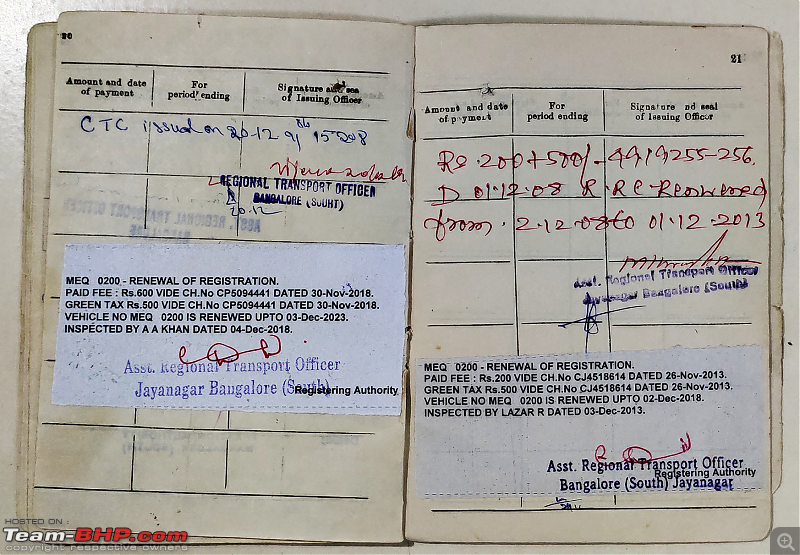 20
Amount and date of payment
For period ending
Signature and sea of Issuing Officer
CTC issued on 20-12-91
REGIONAL TRANSPORT OFFICER
BANGALORE (SOUHT)
20.12
MEQ 0200 - RENEWAL OF REGISTRATION.
PAID FEE : Rs.600 VIDE CH.No CP5094441 DATED 30-Nov-2018.
GREEN TAX Rs.500 VIDE CH.No CP5094441 DATED 30-Nov-2018.
VEHICLE NO MEQ 0200 IS RENEWED UPTO 03-Dec-2023.
INSPECTED BY A A KHAN DATED 04-Dec-2018.
Asst. Regional Transport Officer
Jayanagar Bangalore (South)
Registering Authority
21
Amount and date of payment
For period ending
Signature nd seal of Issuing Officer
Rs. 200+500/- 4919255-256.
D 01.12.08 R. RC Renewed
from 2.12.08 to 01.12.2013
Asst. Regional Transport Officer
Jayanagar Bangalore (South)
MEQ 0200 - RENEWAL OF REGISTRATION.
PAID FEE : Rs.200 VIDE CH.No CJ4518614 DATED 26-Nov-2013.
GREEN TAX Rs.500 VIDE CH.No CJ4518614 DATED 26-Nov-2013.
VEHICLE NO MEQ 0200 IS RENEWED UPTO 02-Dec-2018.
INSPECTED BY LAZAR R DATED 03-Dec-2013.
Asst. Regional Transport Officer
Registering Authority
Bangalore (South) Jayanagar
HOSTED ON :
Team-BHP.com
copyright respective owners